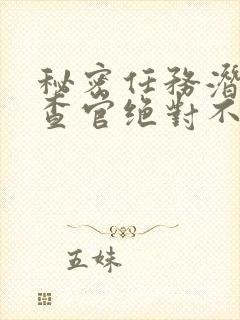 秘密任務潛
查官絕對不
五妹